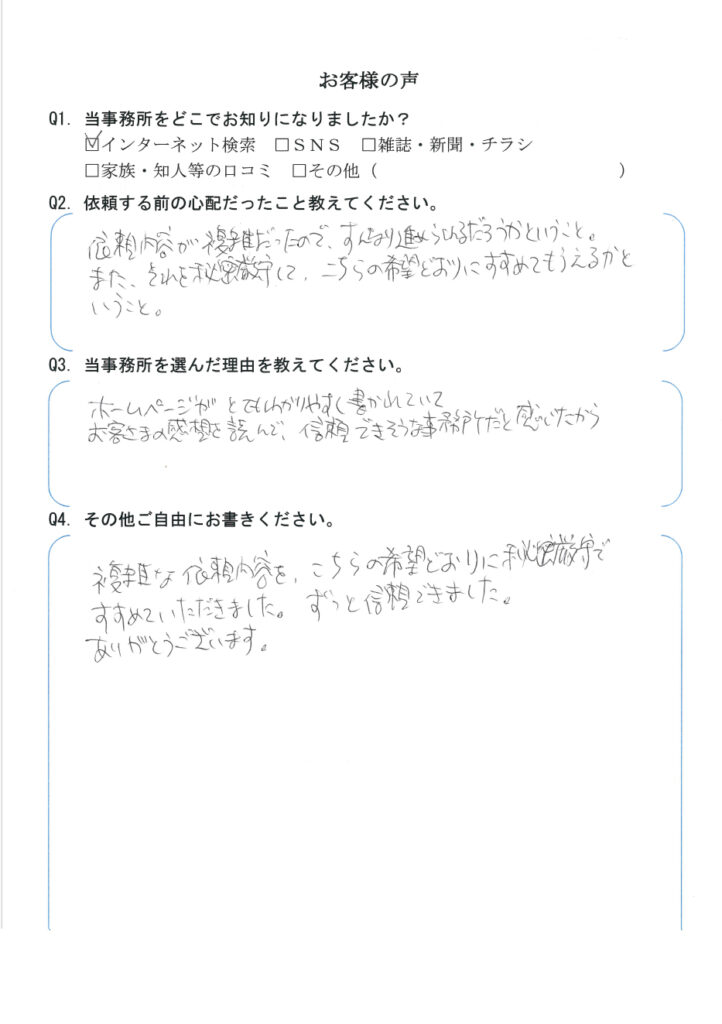 お客様の声
Q1. 当事務所をどこでお知りになりましたか？
☑インターネット検索 □ＳＮＳ □雑誌・新聞・チラシ
□家族・知人等の口コミ □その他（ ）
Q2. 依頼する前の心配だったこと教えてください。
依頼内容が複雑だったので、すんなり進められるだろうかということ。
また、それを秘密厳守して、こちらの希望どおりにすすめてもらえるかと
いうこと。
Q3. 当事務所を選んだ理由を教えてください。
ホームページがとてもわかりやすく書かれていて
お客さまの感想を読んで、信頼できそうな事務所だと感じたから
Q4. その他ご自由にお書きください。
複雑な依頼内容を、こちらの希望どおりに秘密厳守で
すすめていただきました。ずっと信頼できました。
ありがとうございます。